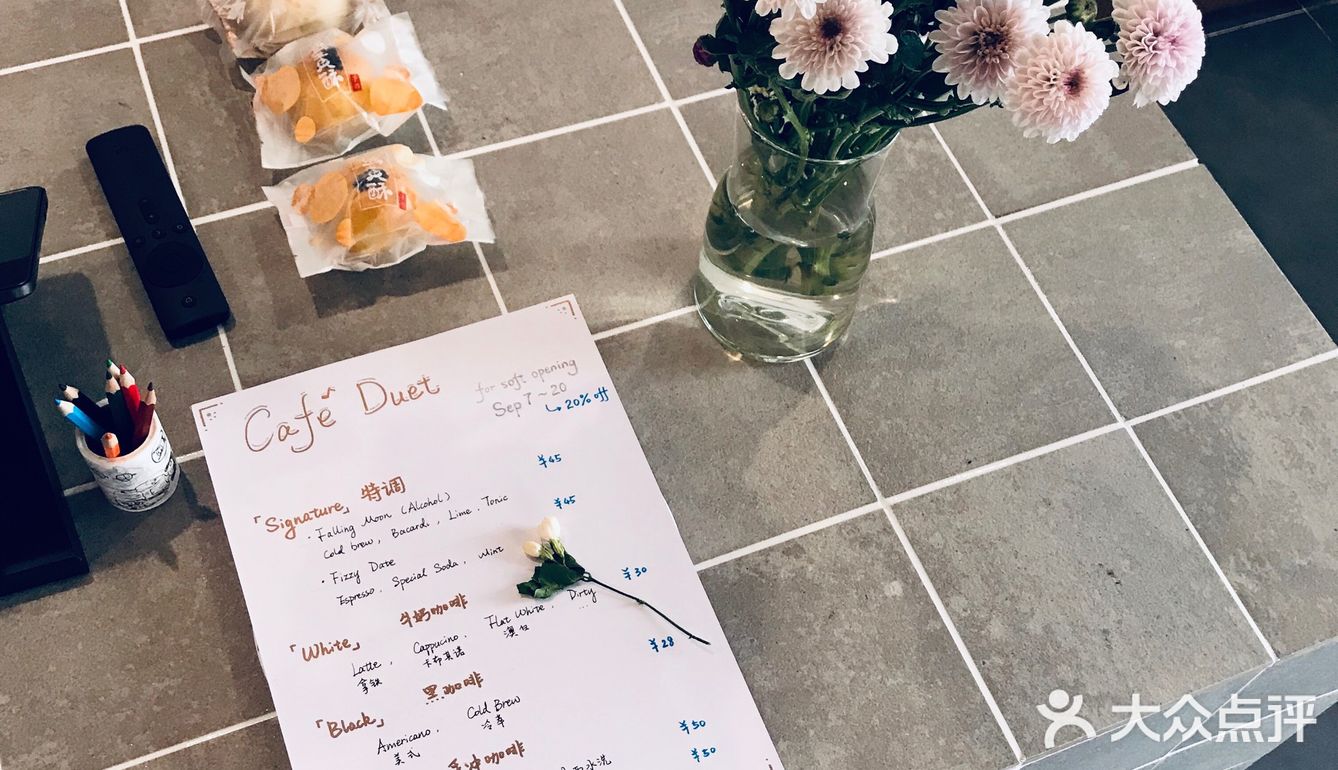 蛋黄酥
黄酥
Café Duet
for soft opening
Sep 7~20
20% off
¥45
「Signature」特调
· Falling Moon (Alcohol)
Cold brew, Bacardi, Lime, Tonic
¥45
· Fizzy Date
Espresso, Special Soda, Mint
¥30
「White」牛奶咖啡
Latte, Cappucino, Flat White, Dirty ...
拿铁 卡布其诺 澳白
¥28
「Black」黑咖啡
Americano, Cold Brew
美式 冷萃
¥50
冲咖啡
水洗
¥50
大众点评